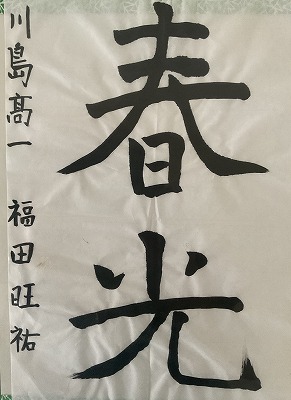 春光
川島髙一 福田旺祐